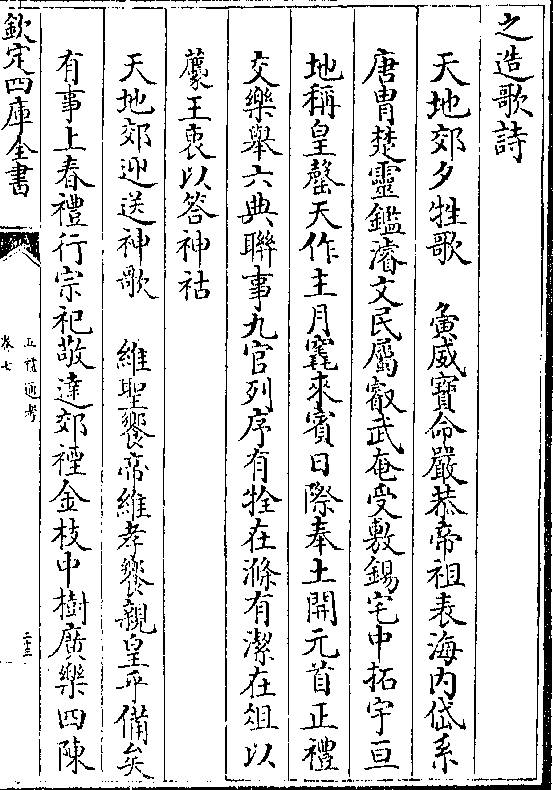 之造歌詩
天地郊夕牲歌　夤威寶命嚴恭帝祖表海内岱系
唐胄楚靈鑑濬文民屬叡武奄受敷錫宅中拓宇亘
地稱皇罄天作主月竁來賓日際奉土開元首正禮
交樂舉六典聯事九官列序有牷在滌有潔在俎以
薦王衷以答神祜
天地郊迎送神歌　維聖饗帝維孝饗親皇乎備矣
有事上春禮行宗祀敬達郊禋金枝中樹廣樂四陳
欽定四庫全書
五禮通考
卷七
二十三